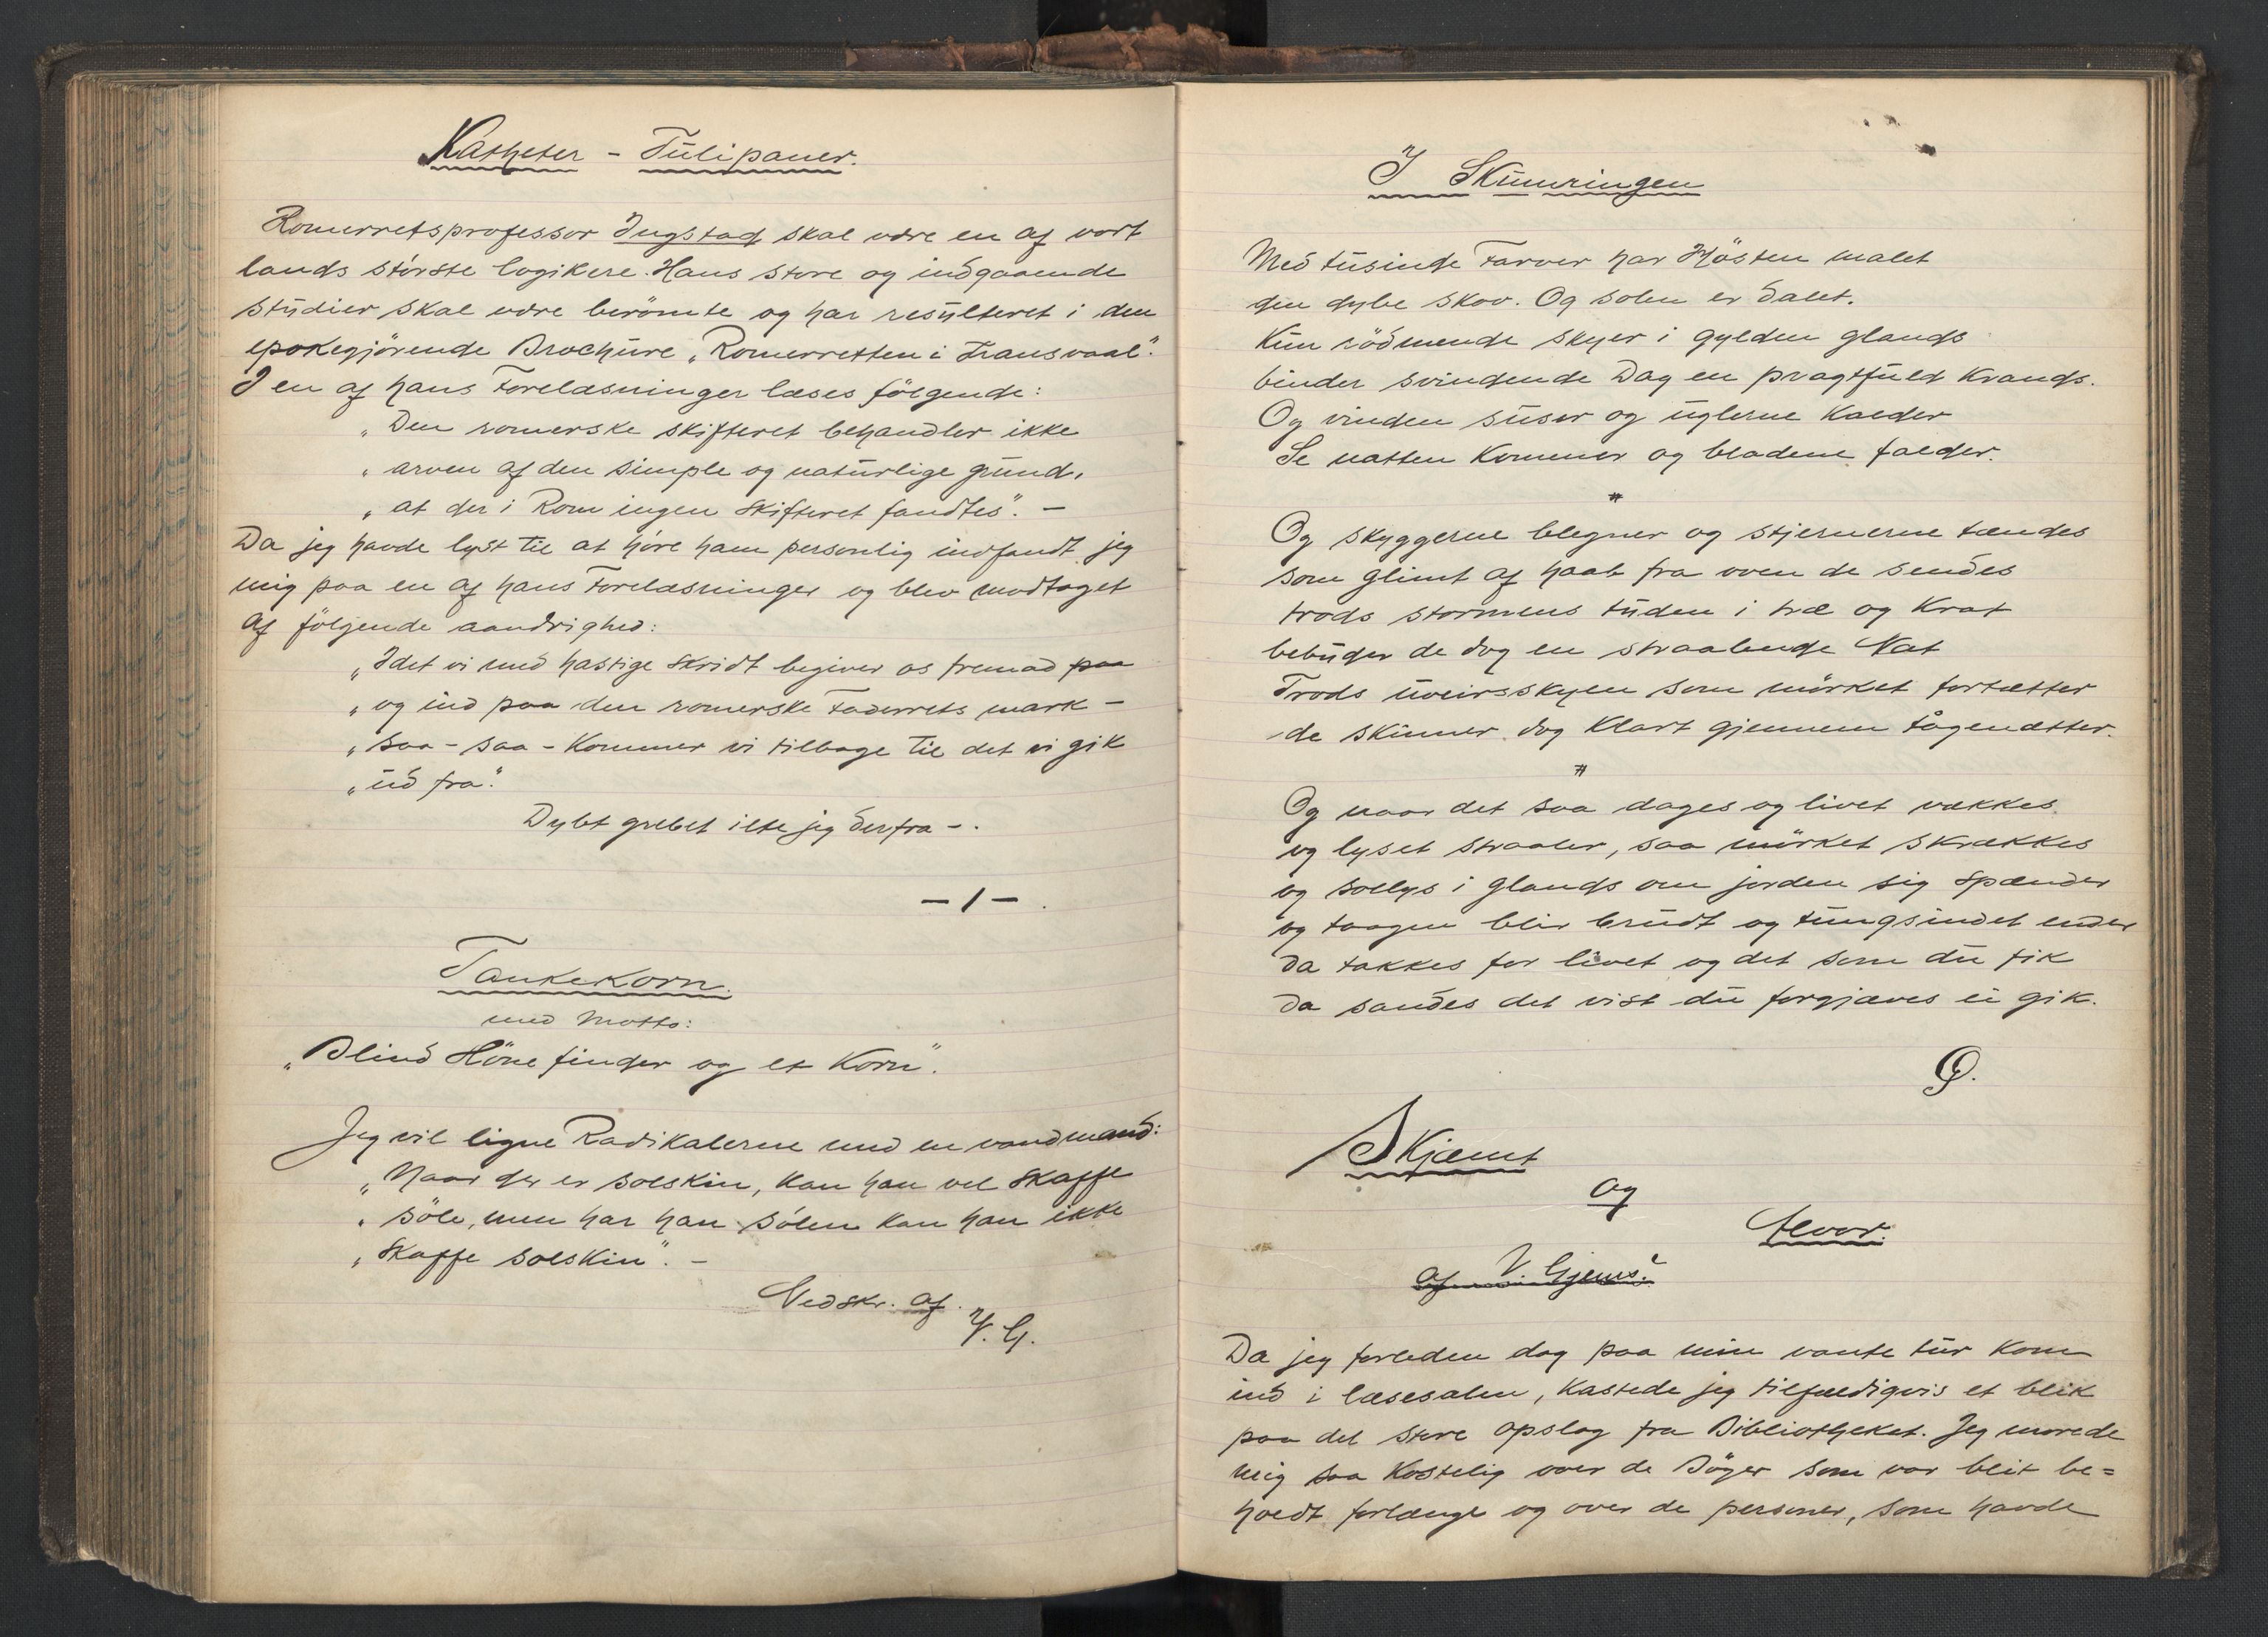 Katheter - Tulipaner.
Romerretsprofessor Ingstad skal være en af vort
lands störste logikere. Hans store og indgaaende
studier skal være berömte og har resulteret i den
epokegjörende Brochure „Romerretten i Transvaal".
I en af hans Forelæsninger læses fölgende:
„Den romerske skifteret behandler ikke
„arven af den simple og naturlige grund,
„at der i Rom ingen skifteret fandtes". -
Da jeg havde lyst til at höre ham personlig indfandt jeg
mig paa en af hans Forelæsninger og blev modtaget
af fölgende aandrighed:
„Idet vi med hastige skridt begiver os fremad paa
„og ind paa den romerske Faderrets mark -
„saa - saa - kommer vi tilbage til det vi gik
„ud fra".
Dybt grebet ilte jeg derfra -.
- 1 - .
Tankekorn.
med Motto:
„Blind Höne finder og et Korn".
Jeg vil ligne Radikalerne med en vandmand:
„Naar der er solskin, kan han vel skaffe
„söle, men har han sölen kan han ikke
„skaffe solskin". -
Nedskr. af.
V. G.
I Skumringen
Med tusinde Farver har Hösten malet
den dybe skov. Og solen er dalet.
Kun rödmende skyer i gylden glands
binder svindende Dag en pragtfuld Krands.
Og vinden suser og uglerne kalder
Se natten kommer og bladene falder.
#
Og skyggerne blegner og stjernerne tændes
som glimt af haab fra oven de sendes
trods stormens tuden i træ og Krat
bebuder de dog en straalende Nat
Trods uveirsskyen som mörket fortætter
de skinner dog klart gjennem tågenætter.
#
Og naar det saa dages og livet vækkes
og lyset straaler, saa mörket skrækkes
og sollys i glands om jorden sig spænder
og taagen blir brudt og tungsindet ender
da takkes for livet og det som du fik
da sandes det vist du forgjæves ei gik.
G.
Skjæmt
og
Alvor.
af V. Gjems.
Da jeg forleden dag paa min vante tur kom
ind i læsesalen, kastede jeg tilfældigvis et blik
paa det store opslag fra Bibliotheket. Jeg morede
mig saa kostelig over de Böger som var blit be=
holdt forlænge og over de personer, som havde